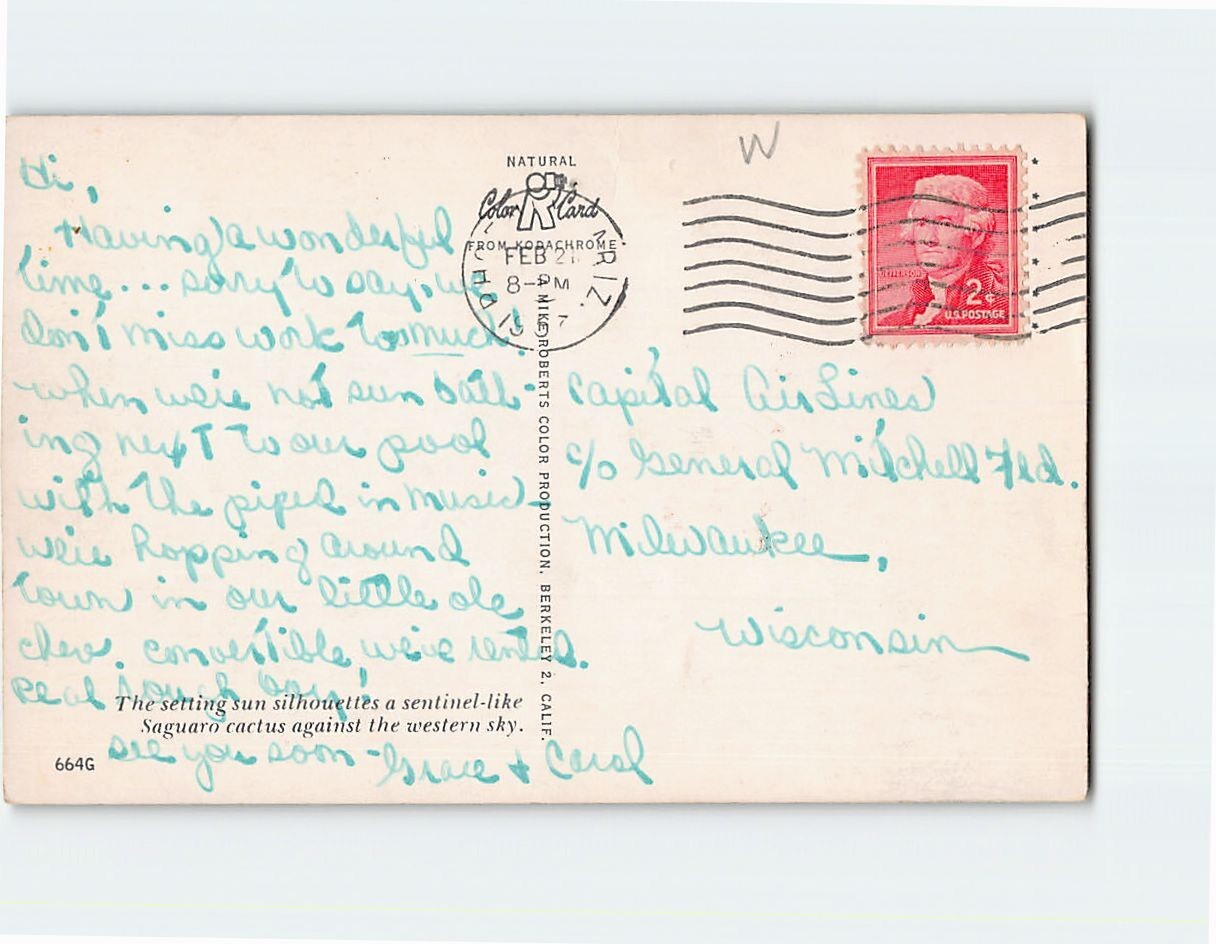 Hi,
Having a wonderful
time... sorry to say, we
don't miss work to much!
when we're not sun bath-
ing next to our pool
with the piped in music -
we're hopping around
town in our little ole
chev. convertible we've rented.
real tough boy!
see you soon - Grace + Carol
The setting sun silhouettes a sentinel-like
Saguaro cactus against the western sky.
664G
NATURAL
Color Card
FROM KODACHROME
A MIKE ROBERTS COLOR PRODUCTION, BERKELEY 2, CALIF.
ARIZ.
FEB 21
8-PM
W
JEFFERSON
2¢
U.S. POSTAGE
Capital AirLines
c/o General Mitchell Fld.
Milwaukee,
Wisconsin